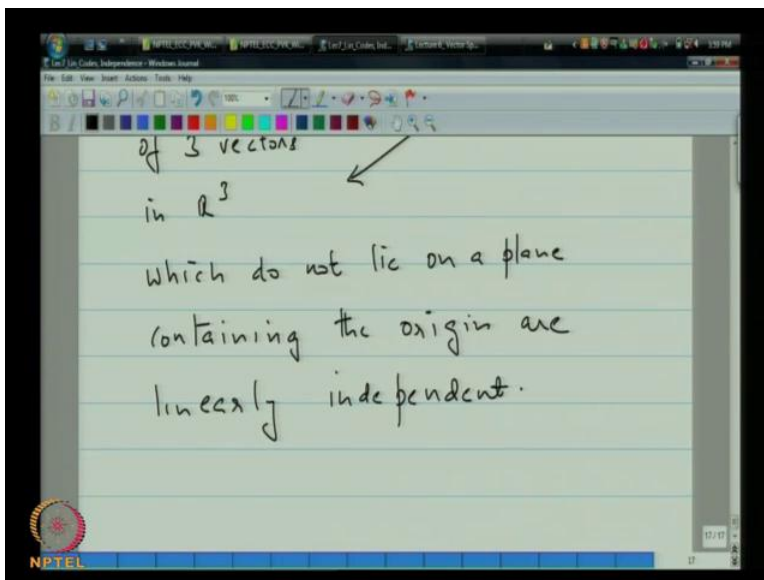 Lec7_Lin_Codes, Independence - Windows Journal
File Edit View Insert Actions Tools Help
100%
B I
of 3 vectors
in R³
which do not lie on a plane
containing the origin are
linearly independent.
17/17
17
NPTEL